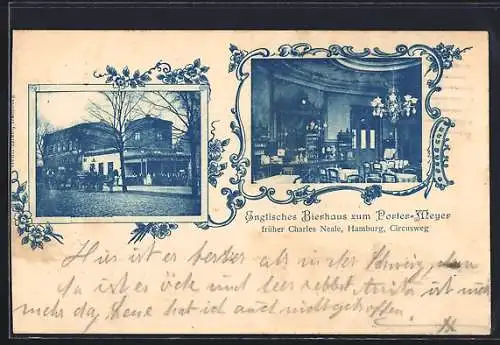 Englisches Bierhaus zum Porter-Meyer
früher Charles Neale, Hamburg, Circusweg
Hier ist er fescher als in der
Da ist es öde und leer selbst Anita ist nicht
mehr da, Lene hat ich auch nicht getroffen.